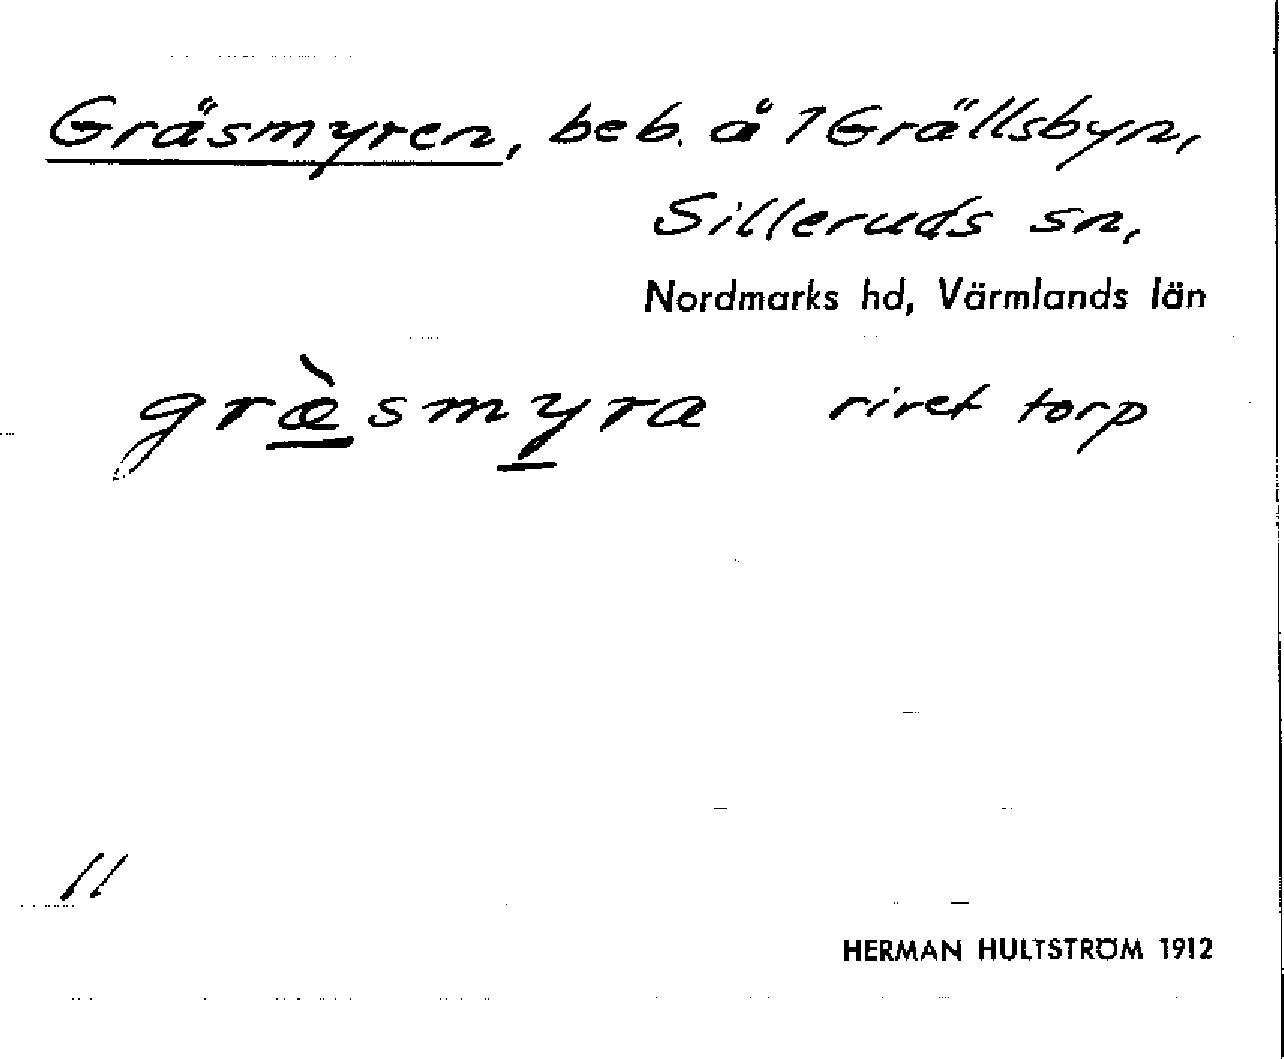 Gräsmyren, beb. å 1 Grällsbyn,
Silleruds sn,
Nordmarks hd, Värmlands län
græ̀smyra rivet torp
11
HERMAN HULTSTRÖM 1912